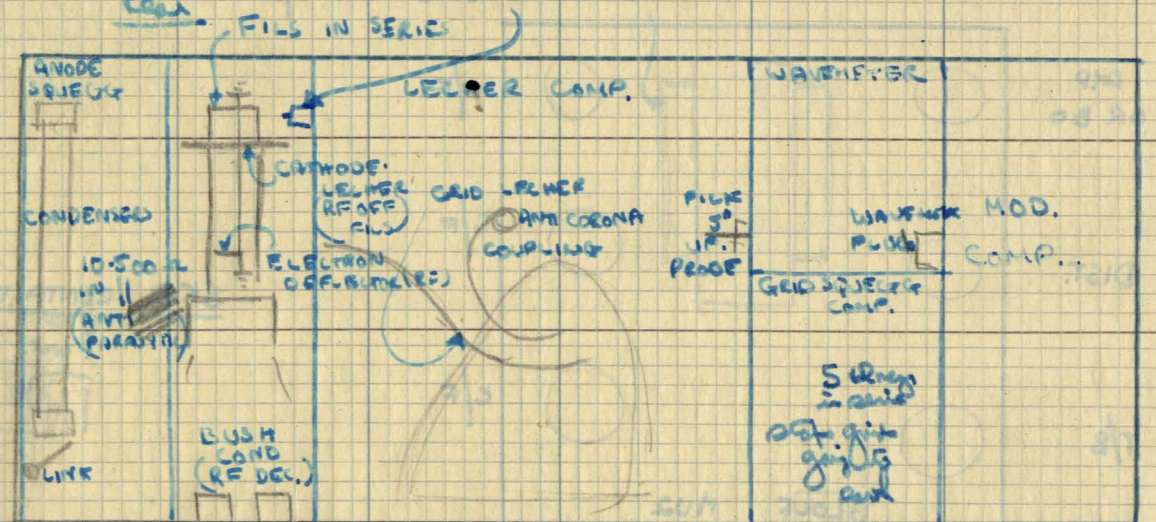 Rear
FILS IN SERIES
ANODE
SQUEGG
CONDENSER
10-500 Ω
IN 11
(ANTI
PARASITIC)
LINK
CATHODE.
LECHER
(RF OFF
FILS)
ELECTRON
DEFLECTOR (RF)
BUSH
COND
(RF DEC.)
LECHER COMP.
GRID LECHER
ANTI CORONA
COUPLING
PICK
UP.
PROBE
WAVEMETER
WAVEMETER
PLUG
GRID SQUEGG
COMP.
5
in series
stops grid
going to
earth
MOD.
COMP.